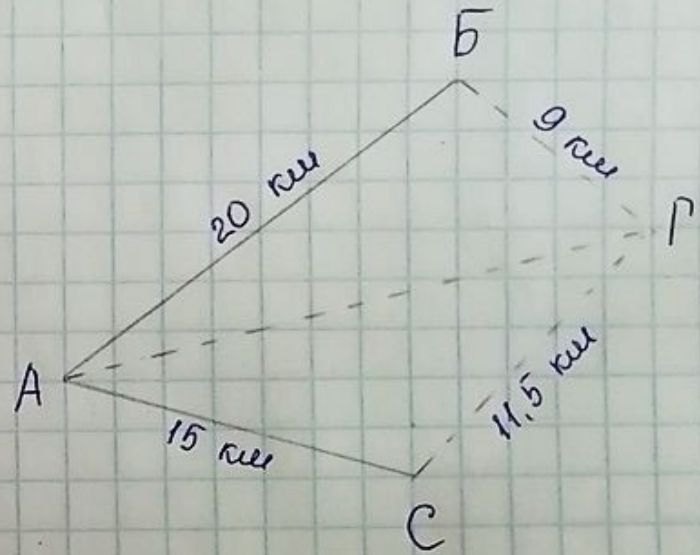 Б
9 км
20 км
Г
А
15 км
11,5 км
С